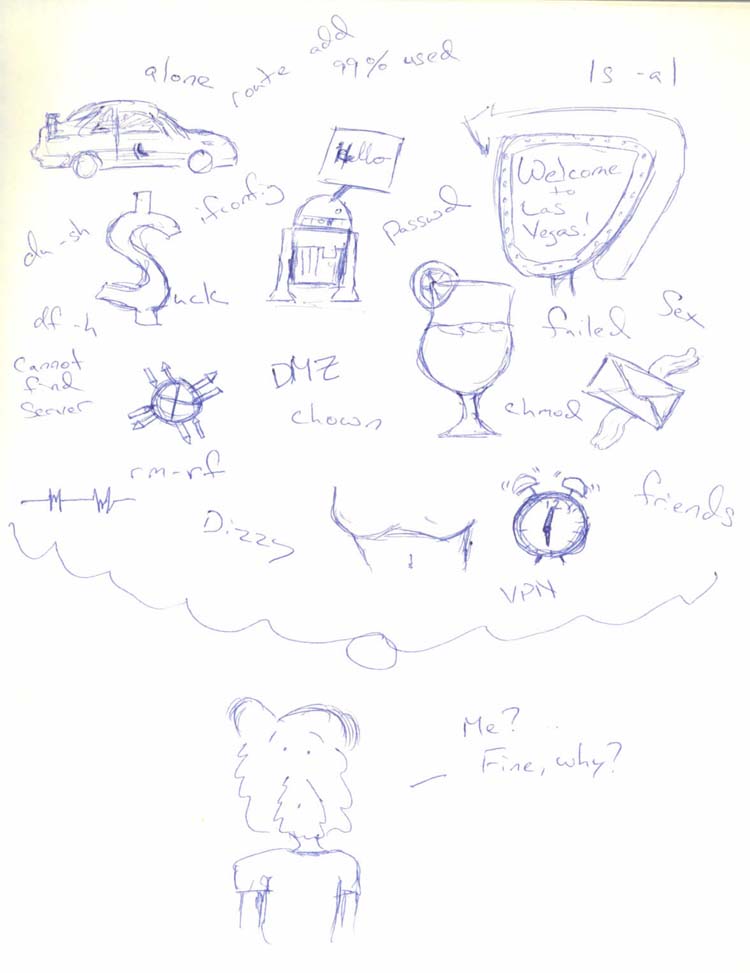 alone
route add
99% used
ls -al
Hello
Welcome
to
Las
Vegas!
du -sh
$uck
ifconfig
passwd
df -h
failed
Sex
Cannot
find
Server
DMZ
chown
chmod
rm -rf
Dizzy
friends
VPN
Me?
Fine, why?